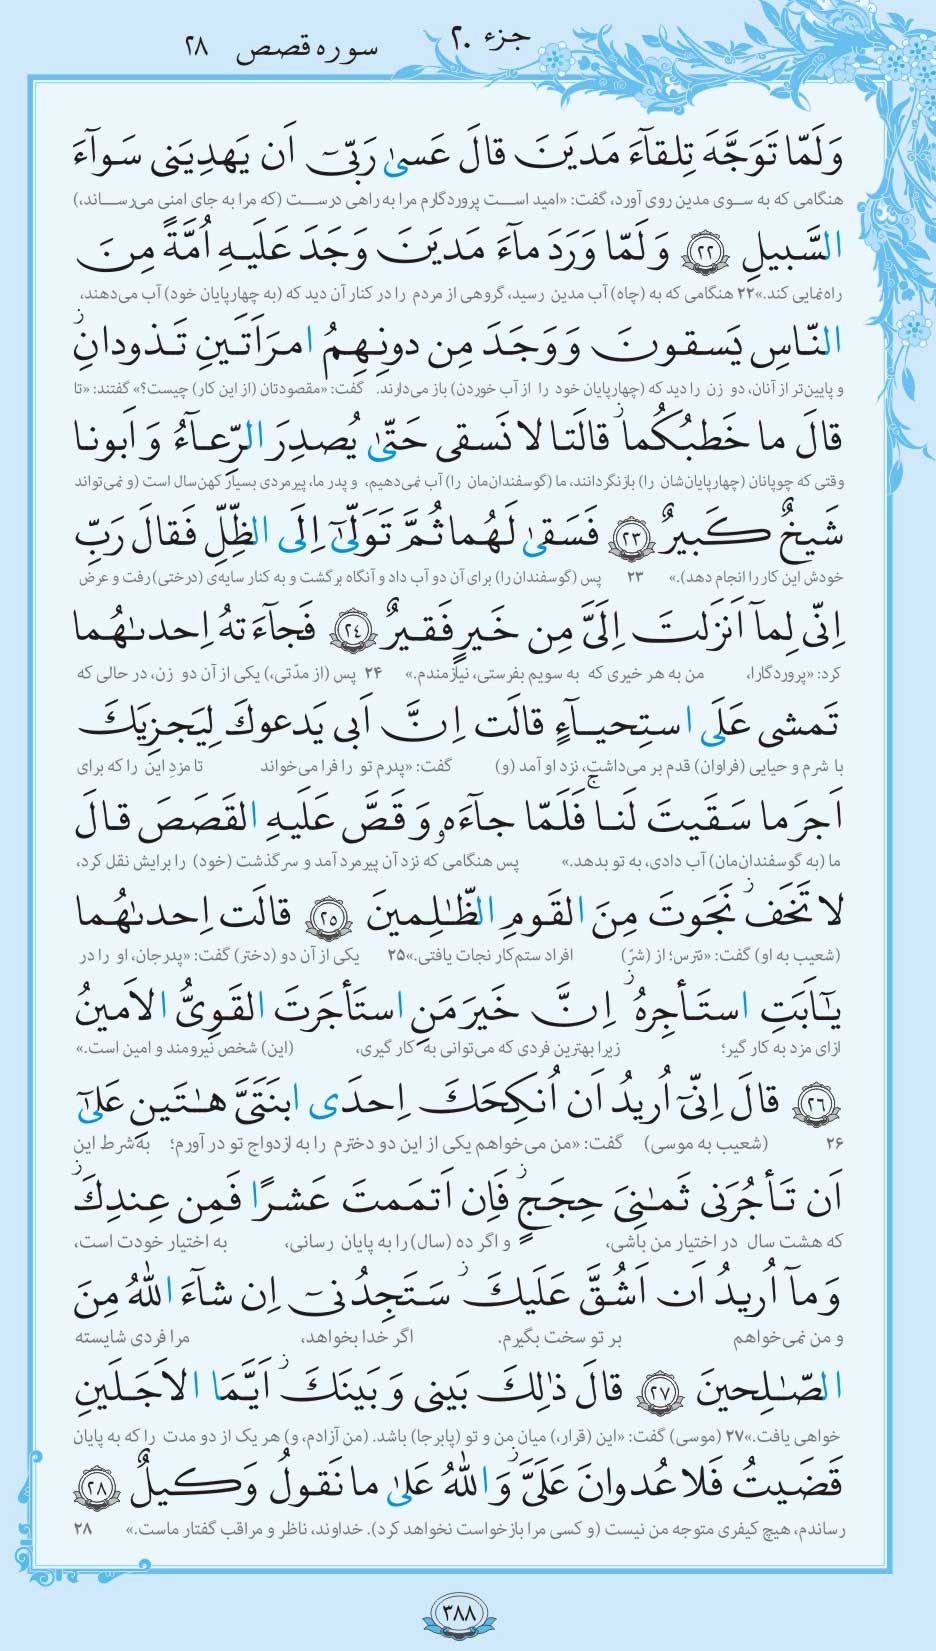 جزء ۲۰ سوره قصص ۲۸
وَلَمّا تَوَجَّهَ تِلقآءَ مَديَنَ قالَ عَسىٰ رَبّىٓ اَن يَهدِيَنى سَوآءَ
هنگامی که به سوی مدین روی آورد، گفت: «امید است پروردگارم مرا به راهی درست (که مرا به جای امنی می‌رساند،)
السَّبيلِ ﴿۲۲﴾ وَ لَمّا وَرَدَ مآءَ مَديَنَ وَجَدَ عَلَيهِ اُمَّةً مِنَ
راه‌نمایی کند.»۲۲ هنگامی که به (چاه) آب مدین رسید، گروهی از مردم را در کنار آن دید که (به چهارپایان خود) آب می‌دهند،
النّاسِ يَسقونَ وَ وَجَدَ مِن دونِهِمُ امرَاَتَينِ تَذودانِ ز
و پایین‌تر از آنان، دو زن را دید که (چهارپایان خود را از آب خوردن) باز می‌دارند. گفت: «مقصودتان (از این کار) چیست؟» گفتند: «تا
قالَ ما خَطبُكُما ز قالَتا لا نَسقى حَتّىٰ يُصدِرَ الرِّعآءُ وَ اَبونا
وقتی که چوپانان (چهارپایان‌شان را) بازنگردانند، ما (گوسفندان‌مان را) آب نمی‌دهیم، و پدر ما، پیرمردی بسیار کهن‌سال است (و نمی‌تواند
شَيخٌ كَبيرٌ ﴿۲۳﴾ فَسَقىٰ لَهُما ثُمَّ تَوَلّىٰٓ اِلَى الظِّلِّ فَقالَ رَبِّ
خودش این کار را انجام دهد).» ۲۳ پس (گوسفندان را) برای آن دو آب داد و آنگاه برگشت و به کنار سایه‌ی (درختی) رفت و عرض
اِنّى لِمآ اَنزَلتَ اِلَىَّ مِن خَيرٍ فَقيرٌ ﴿۲۴﴾ فَجآءَتهُ اِحدىٰهُما
کرد: «پروردگارا، من به هر خیری که به سویم بفرستی، نیازمندم.» ۲۴ پس (از مدّتی،) یکی از آن دو زن، در حالی که
تَمشى عَلَى استِحيآءٍ قالَت اِنَّ اَبى يَدعوكَ لِيَجزِيَكَ
با شرم و حیایی (فراوان) قدم بر می‌داشت، نزد او آمد (و) گفت: «پدرم تو را فرا می‌خواند تا مزدِ این را که برای
اَجرَ ما سَقَيتَ لَنا ج فَلَمّا جآءَهو وَ قَصَّ عَلَيهِ القَصَصَ قالَ
ما (به گوسفندان‌مان) آب دادی، به تو بدهد.» پس هنگامی که نزد آن پیرمرد آمد و سرگذشت (خود) را برایش نقل کرد،
لا تَخَف ز نَجَوتَ مِنَ القَومِ الظّٰلِمينَ ﴿۲۵﴾ قالَت اِحدىٰهُما
(شعیب به او) گفت: «نترس؛ از (شرّ) افراد ستم‌کار نجات یافتی.»۲۵ یکی از آن دو (دختر) گفت: «پدرجان، او را در
يٰٓاَبَتِ استَأجِرهُ ز اِنَّ خَيرَ مَنِ استَأجَرتَ القَوِىُّ الاَمينُ
ازای مزد به کار گیر؛ زیرا بهترین فردی که می‌توانی به کار گیری، (این) شخص نیرومند و امین است.»
﴿۲۶﴾ قالَ اِنّىٓ اُريدُ اَن اُنكِحَكَ اِحدَى ابنَتَىَّ هٰتَينِ عَلىٰٓ
۲۶ (شعیب به موسی) گفت: «من می‌خواهم یکی از این دو دخترم را به ازدواج تو در آورم؛ به شرط این
اَن تَأجُرَنى ثَمٰنِىَ حِجَجٍ ز فَاِن اَتمَمتَ عَشرًا فَمِن عِندِكَ ز
که هشت سال در اختیار من باشی، و اگر ده (سال) را به پایان رسانی، به اختیار خودت است،
وَ مآ اُريدُ اَن اَشُقَّ عَلَيكَ ز سَتَجِدُنىٓ اِن شآءَ اللّٰهُ مِنَ
و من نمی‌خواهم بر تو سخت بگیرم. اگر خدا بخواهد، مرا فردی شایسته
الصّٰلِحينَ ﴿۲۷﴾ قالَ ذٰلِكَ بَينى وَ بَينَكَ ز اَيَّمَا الاَجَلَينِ
خواهی یافت.»۲۷ (موسی) گفت: «این (قرار،) میان من و تو (پابرجا) باشد. (من آزادم، و) هر یک از دو مدت را که به پایان
قَضَيتُ فَلا عُدوانَ عَلَىَّ ز وَ اللّٰهُ عَلىٰ ما نَقولُ وَكيلٌ ﴿۲۸﴾
رساندم، هیچ کیفری متوجه من نیست (و کسی مرا بازخواست نخواهد کرد). خداوند، ناظر و مراقب گفتار ماست.» ۲۸
۳۸۸